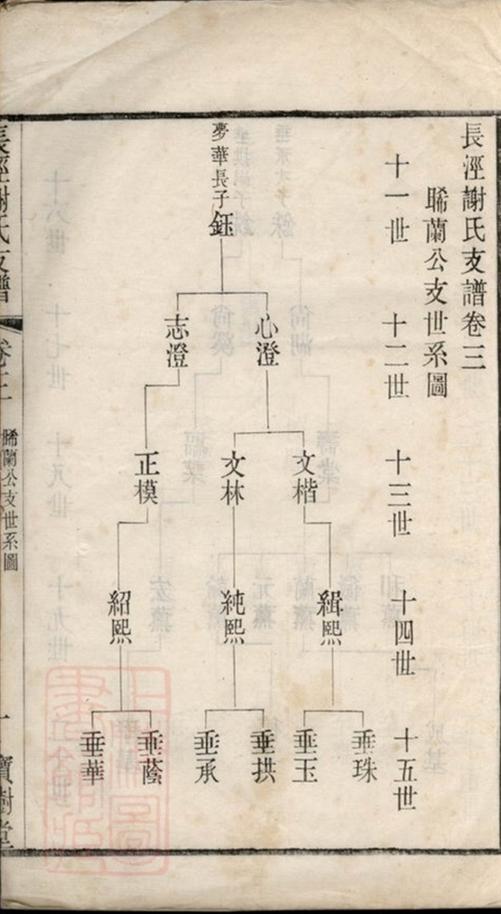 長涇謝氏支譜卷三
晞蘭公支世系圖
十一世
十二世
十三世
十四世
十五世
夢華長子
鈺
心澄
志澄
文楷
文林
正模
緝熙
純熙
紹熙
垂珠
垂玉
垂拱
垂承
垂蔭
垂華
長涇謝氏支譜
卷三
晞蘭公支世系圖
一
寶樹堂